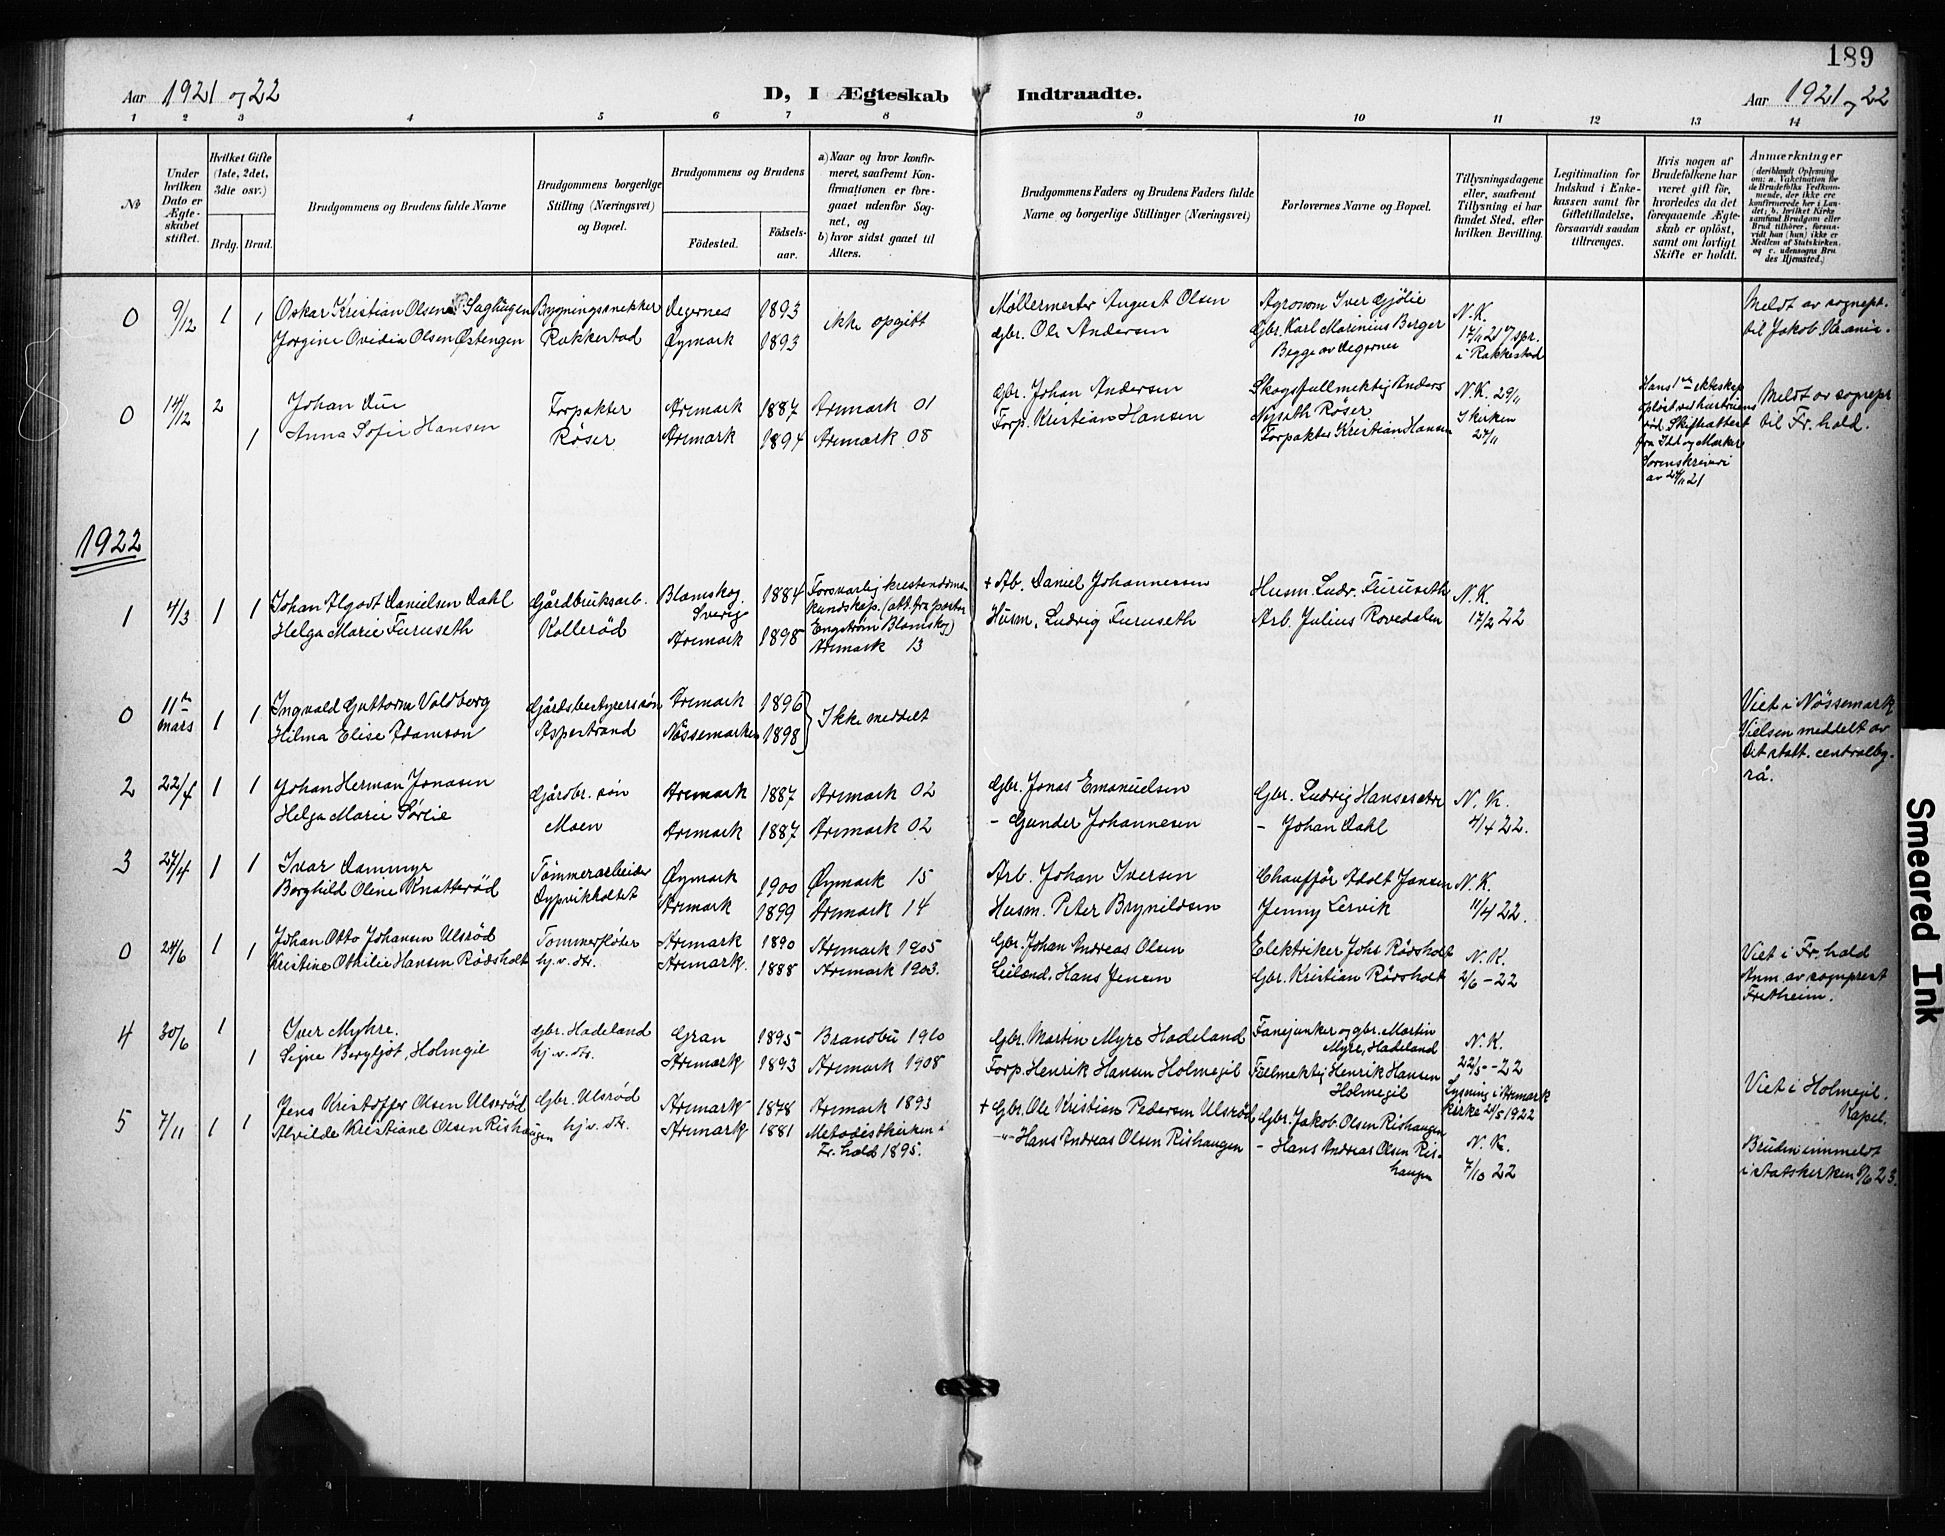 189
Aar 1921 og 22
D, I Ægteskab Indtraadte.
Aar 1921 og 22
1 2 3 4 5 6 7 8 9 10 11 12 13 14
No
Under hvilken Dato er Ægteskabet stiftet.
Hvilket Gifte (1ste, 2det, 3die osv.)
Brdg. Brud.
Brudgommens og Brudens fulde Navne
Brudgommens borgerlige Stilling (Næringsvei) og Bopæl.
Brudgommens og Brudens
Födested. Födselsaar.
a) Naar og hvor konfirmeret, saafremt Konfirmationen er foregaaet udenfor Sognet, og
b) hvor sidst gaaet til Alters.
Brudgommens Faders og Brudens Faders fulde Navne og borgerlige Stillinger (Næringsvei)
Forlovernes Navne og Bopæl.
Tillysningsdagene eller, saafremt Tillysning ei har fundet Sted, efter hvilken Bevilling.
Legitimation for Indskud i Enkekassen samt for Giftetilladelse, forsaavidt saadan tiltrænges.
Hvis nogen af Brudefolkene har været gift för, hvorledes da det foregaaende Ægteskab er oplöst, samt om lovligt Skifte er holdt.
Anmærkninger
0 9/12 1 1 Oskar Kristian Olsen Saghaugen Bygningssnekker Degernes 1893 ikke opgitt Møllermester August Olsen Agronom Iver Gjølie N.K. Meldt av sognepr.
Jorgine Ovidia Olsen Østengen Rakkestad Øymark 1893 gbr. Ole Andersen Gbr. Karl Marinius Berger 17/11 21 til Jakob
Begge av Degernes i Rakkestad
0 14/12 2 Johan Due Forpakter Aremark 1887 Aremark 01 Gbr. Johan Andersen Skogsfullmektig Anders N.K. 29/11 Hans 1ste ekteskap Meldt av sognepr
1 Anna Sofie Hansen Røser Aremark 1894 Aremark 08 Forp. Kristian Hansen Nyseth Röser I kirken opløst ved hustruens til Fr.hald.
Forpakter Kristian Hansen 27/11 død. Skifteattest
fra Idd og Marker
Sorenskriveri
av 24/11 21
1922
1 4/3 1 1 Johan Algodt Danielsen Dahl Gårdbruksarb. Blomskog 1884 Forsvarlig kristendoms + Ab. Daniel Johannessen Husm. Ludv. Furuseth N.K.
Helga Marie Furuseth Kollerød Sverig kundskap. (att. fra pastor Husm. Ludvig Furuseth Arb. Julius Rovedalen 17/2 22
Aremark 1898 Engstrøm Blomskog)
Aremark 13
0 11te mars 1 1 Ingvald Guttorm Voldberg Gårdsbestyrerssøn Aremark 1896 Ikke meddelt Viet i Nössemark
Hilma Elise Adamson Aspestrand Nössemarken 1898 Vielsen meddelt av
Det statt. centralby-
rå.
2 22/4 1 1 Johan Herman Jonasen Gårdbr. søn Aremark 1887 Aremark 02 Gbr. Jonas Emanuelsen Gbr. Ludvig N.K.
Helga Marie Sørlie Moen Aremark 1887 Aremark 02 - Gunder Johannesen - Johan Dahl 4/4 22.
3 27/4 1 1 Ivar Dammyr Tømmerarbeider Øymark 1900 Øymark 15 Arb. Johan Iversen Chauffør Adolt Jansen N.K.
Borghild Oline Knatterød Dypvikholtet Aremark 1899 Aremark 14 Husm. Peter Brynildsen Jenny Lervik 11/4 22.
0 24/6 1 1 Johan Otto Johansen Ulsrød Tømmerfløter Aremark 1890 Aremark 1905 Gbr. Johan Andreas Olsen Elektriker Johs Rødsholt N.K. Viet i Fr.hald
Kristine Othilie Hansen Rødsholt hj.v. dr. Aremark. 1888 Aremark 1903. Leilænd. Hans Jensen Gbr. Kristian Rødsholt 2/6-22 Anm av sogneprest
Fretheim.
4 30/6 1 Iver Myhre. gbr. Hadeland Gran 1895 Brandbu 1910 Gbr. Martin Myre Hadeland Fanejunker og gbr. Martin N.K.
1 Signe Bergljot Holmgil hj.v. dr. Aremark 1893 Aremark 1908 Forp. Henrik Hansen Holmegil Myre, Hadeland 22/5-22 Viet i Holmegil
Fuelmektig Henrik Hansen Lysning i Aremark Kapel.
Holmegil kirke 21/5 1922
5 7/11 1 1 Jens Kristoffer Olsen Ulsrød Gbr. Ulsrød Aremark 1878 Aremark 1893 + Gbr. Ole Kristian Pedersen Ulsrød Gbr. Jakob Olsen Rishaugen N.K. Bruden innmeldt
Alvilde Kristiane Olsen Rishaugen hj.v. dr. Aremark 1881 Metodistkirken i -"- Hans Andreas Olsen Rishaugen - Hans Andreas Olsen Ris- 7/10 22 i statskirken 9/6 23.
Fr.hald 1895. haugen
Smeared Ink